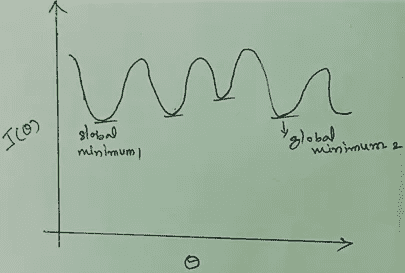 J(θ)
global
minimum 1
global
minimum 2
θ